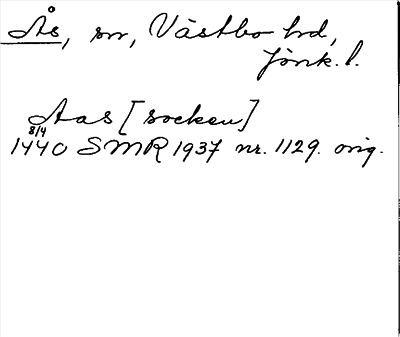 Ås, sn, Västbo hd,
Jönk. l.
Aas [socken]
8/4
1440 SMR 1937 nr. 1129. orig.